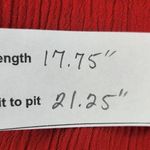 ength 17.75"
it to pit 21.25"